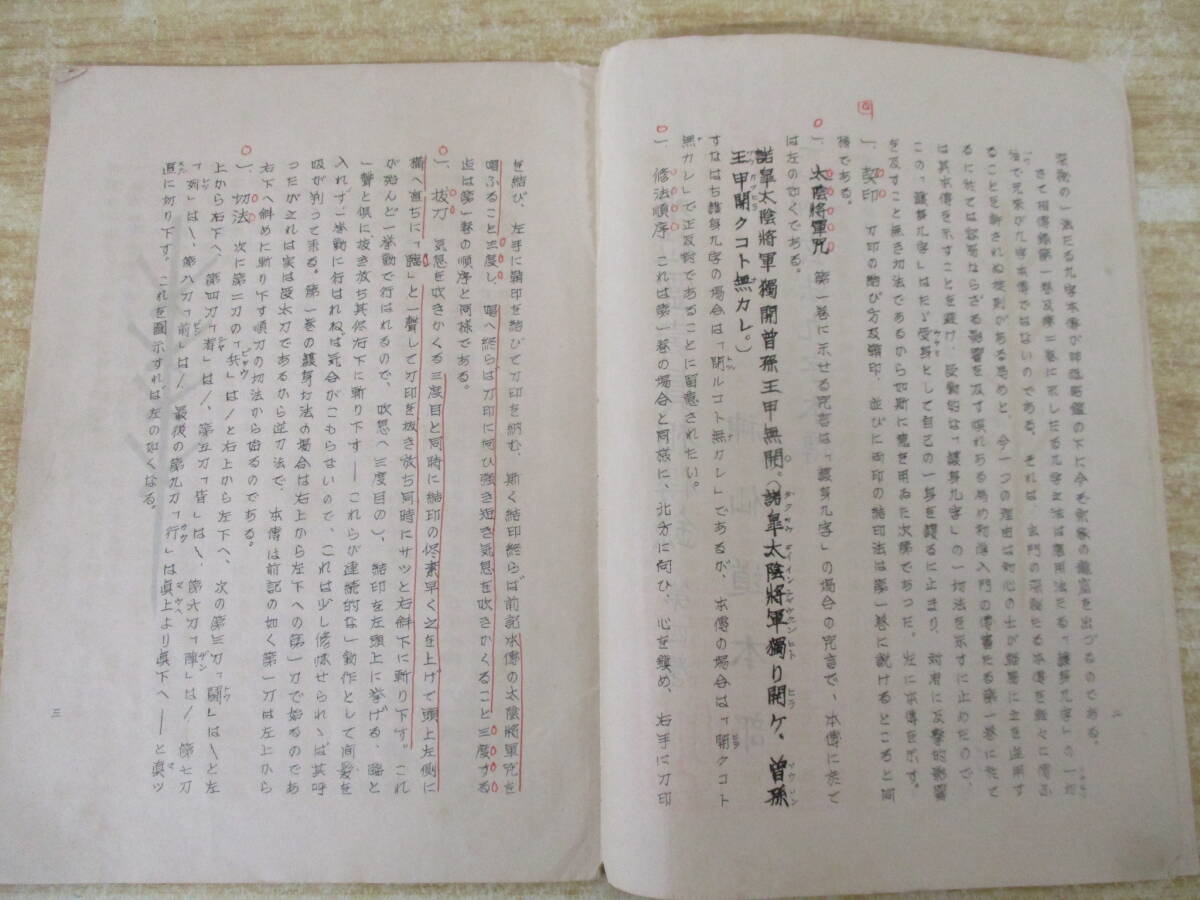 深秘の一法たる九字本傳が師雖慇懃の下に今を
さて相傳第一巻及第二巻に示したる九字之法は應用法たる「護身九字」の一
法で元来が九字本傳ではないのである。それは、玄門の深秘たる本傳を
ることを許されぬ掟則がある為めと、今一つの理由は初心の士が
るに於ては容易ならざる影響を及す惧れある為め初傳入門の傳書たる第一巻に於て
は其本傳を示すことを避け、受動的な「護身九字」の一切法を示すに止めたので、
この「護身九字」はたゞ受身として自己の一身を護るに止まり、対者に反撃的影響
を及すこと無き切法であるから如斯に意を用ゐた次第であつた。左に本傳を示す。
一、契印 刀印の結び方及鞘印、並びに両印の結印法は第一巻に説けるところと同
様である。
一、太陰將軍咒 第一巻に示せる咒言は「護身九字」の場合の咒言で、本傳に於て
は左の如くである。
諾皐太陰將軍獨開曾孫王甲無開。(諾皐太陰將軍獨り開ケ、曾孫
王甲開クコト無カレ。)
すなはち護身九字の場合は「閉ルコト無カレ」であるが、本傳の場合は「開クコト
無カレ」で正反対であることに留意されたい。
一、修法順序 これは第一巻の場合と同様に、北方に向ひ、心を鎮め、右手に刀印
を結び、左手に鞘印を結びて刀印を納む、斯く結印終らば前記本傳の太陰將軍咒を
唱ふること三度し、唱へ終らば刀印に向ひ強き近き気息を吹きかくること三度する
迄は第一巻の順序と同様である。
一、抜刀 気息を吹きかくる三度目と同時に結印の侭素早く之を上げて頭上左側に
構へ直ちに「臨」と一聲して刀印を抜き放ち同時にサツと右斜下に斬り下す。これ
が殆んど一挙動で行はれるので、吹息へ三度目の)、結印を左頭上に挙げる、臨と
一聲と倶に抜き放ち其侭右下に斬り下す——これらが連続的な一動作として間髪を
入れず一挙動に行はれねば気合がこもらないので、これは少し修煉せられゝば其呼
吸が判つて来る。第一巻の護身切法の場合は右上から左下への第一刀で始るのであ
つたが之れは実は受太刀であるから逆刀法で、本傳は前記の如く第一刀は左上から
右下へ斜めに斬り下す順刀の切法から始るのである。
一、切法 次に第二刀の「兵」は/と右上から左下へ、次の第三刀「鬪」は\と左
上から右下へ、第四刀「者」は/、第五刀「皆」は\、第六刀「陣」は/第七刀
「列」は\、第八刀「前」は/最後の第九刀「行」は眞上より眞下へ——と眞ツ
直に切り下す。これを圖示すれば左の如くなる。
三